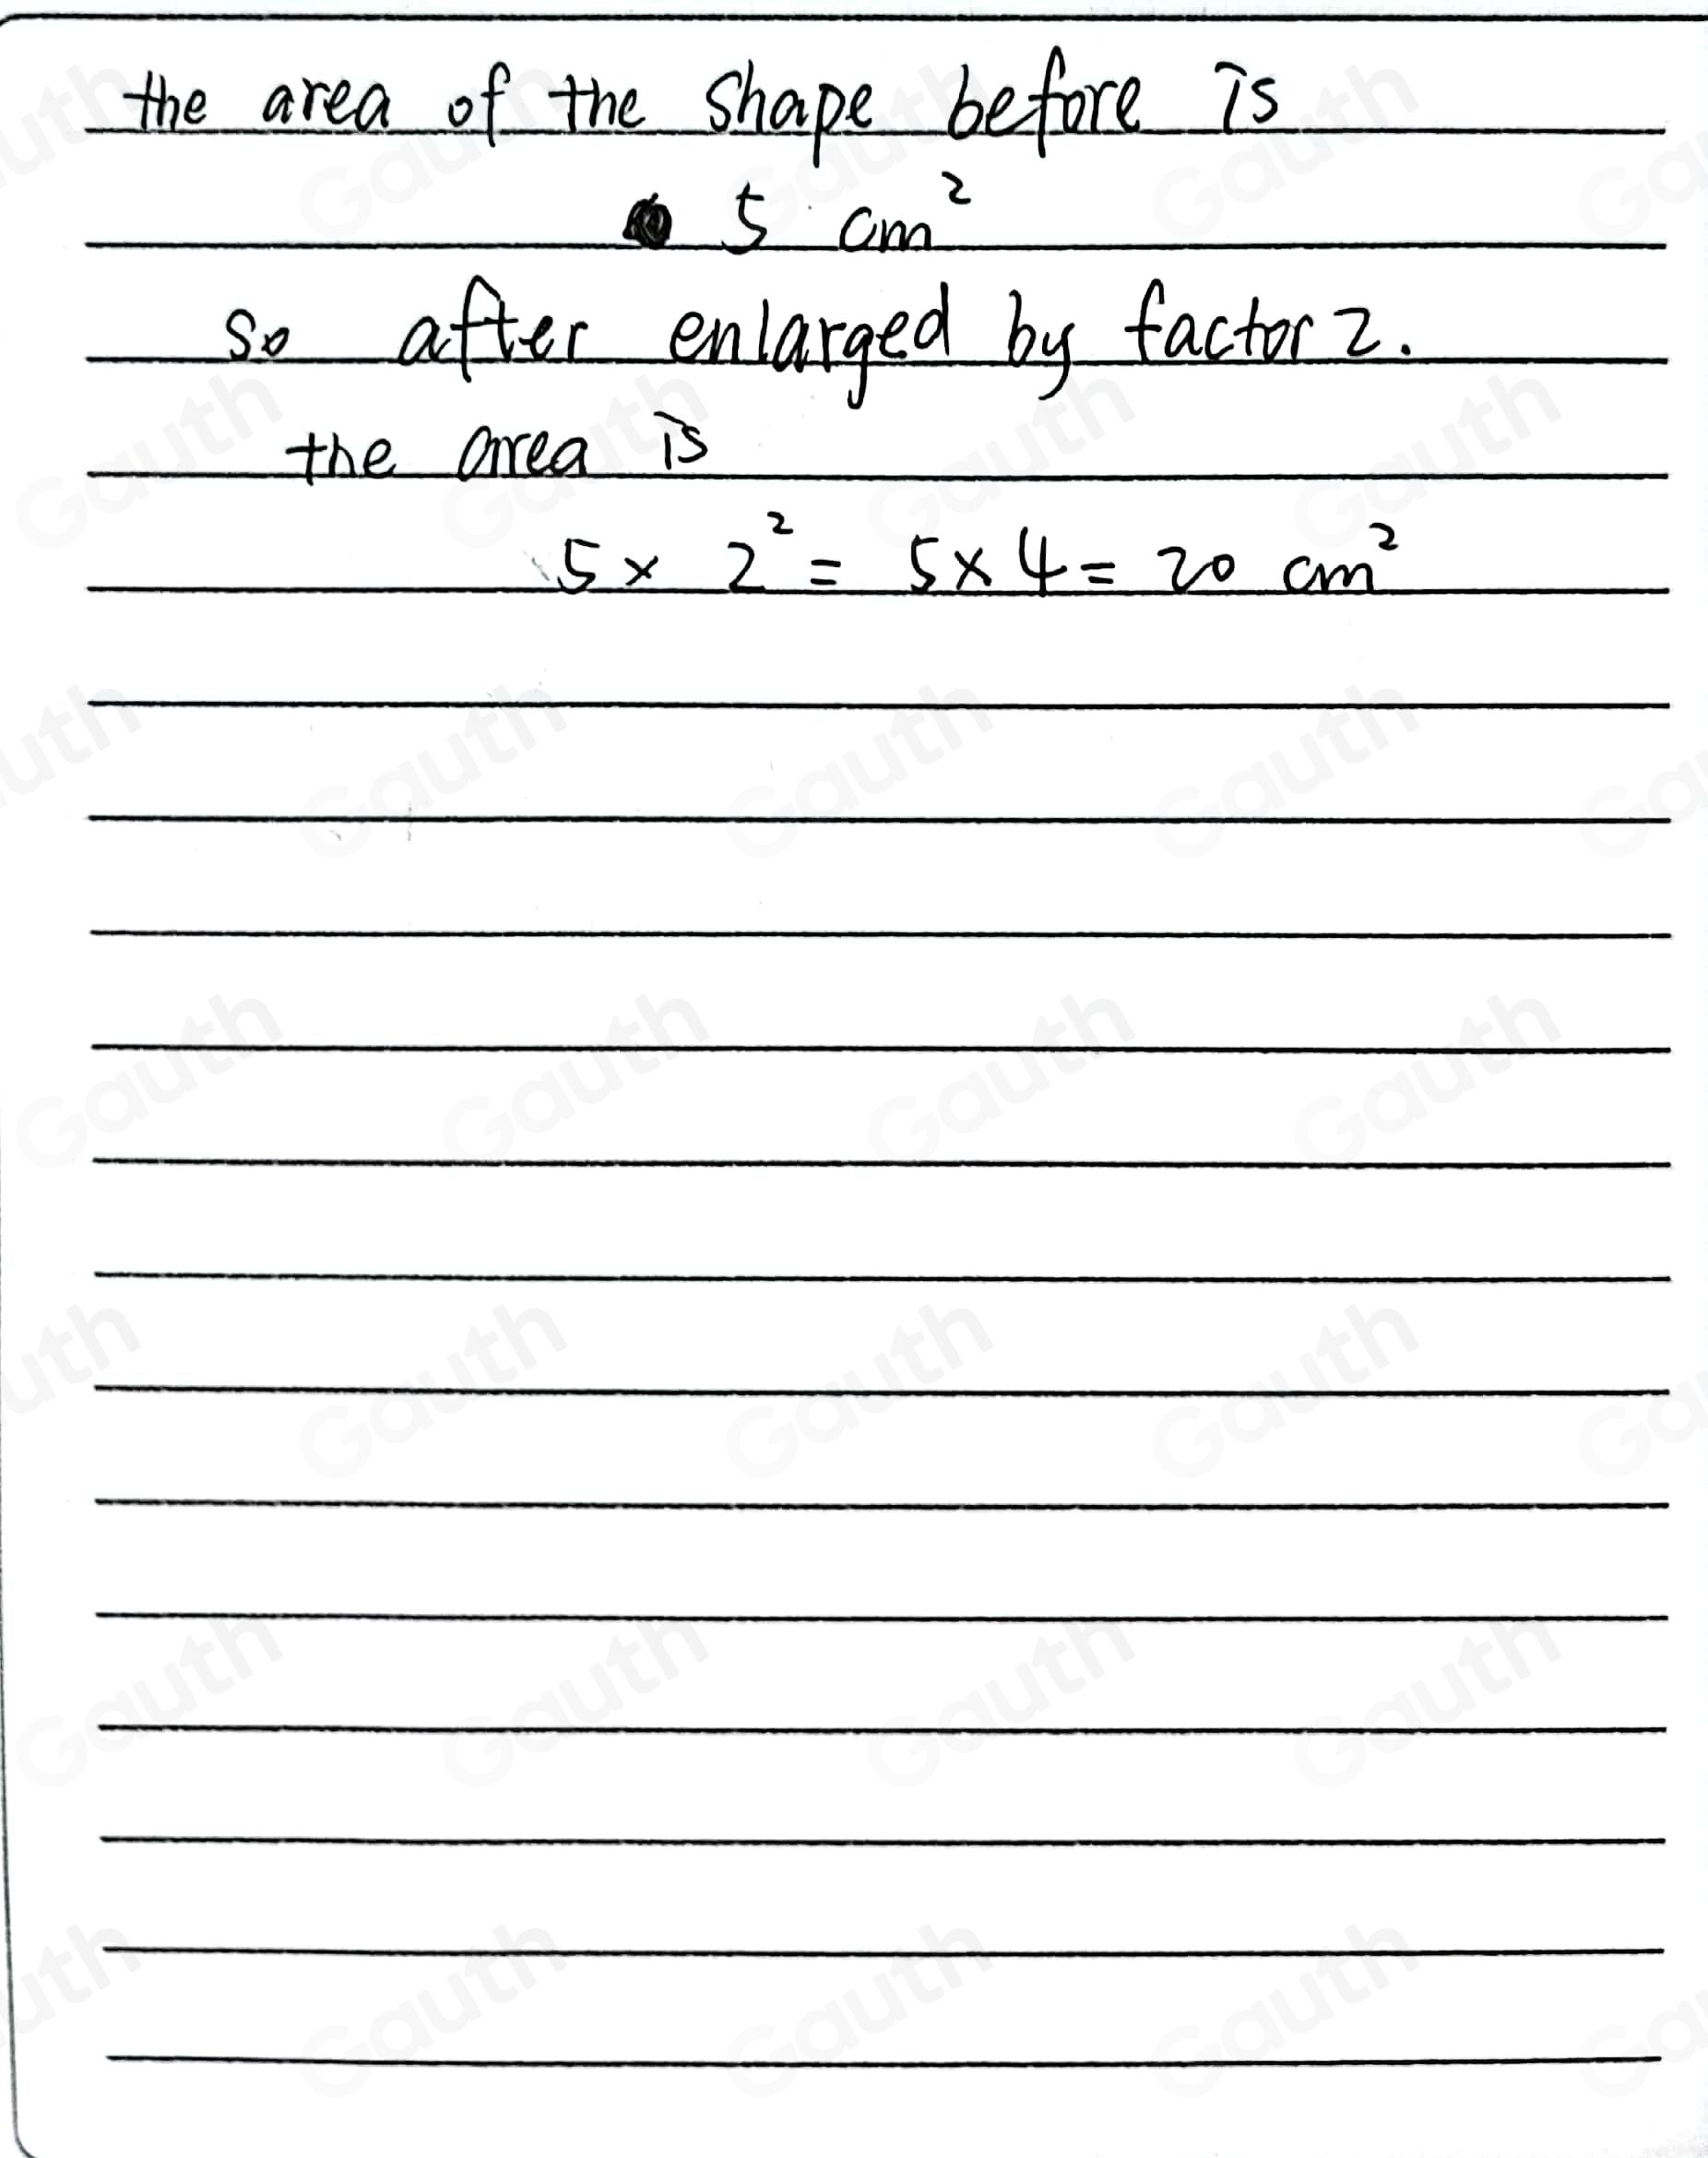 the area of the shape before is
5 cm²
so after enlarged by factor 2.
the area is
5 × 2² = 5 × 4 = 20 cm²